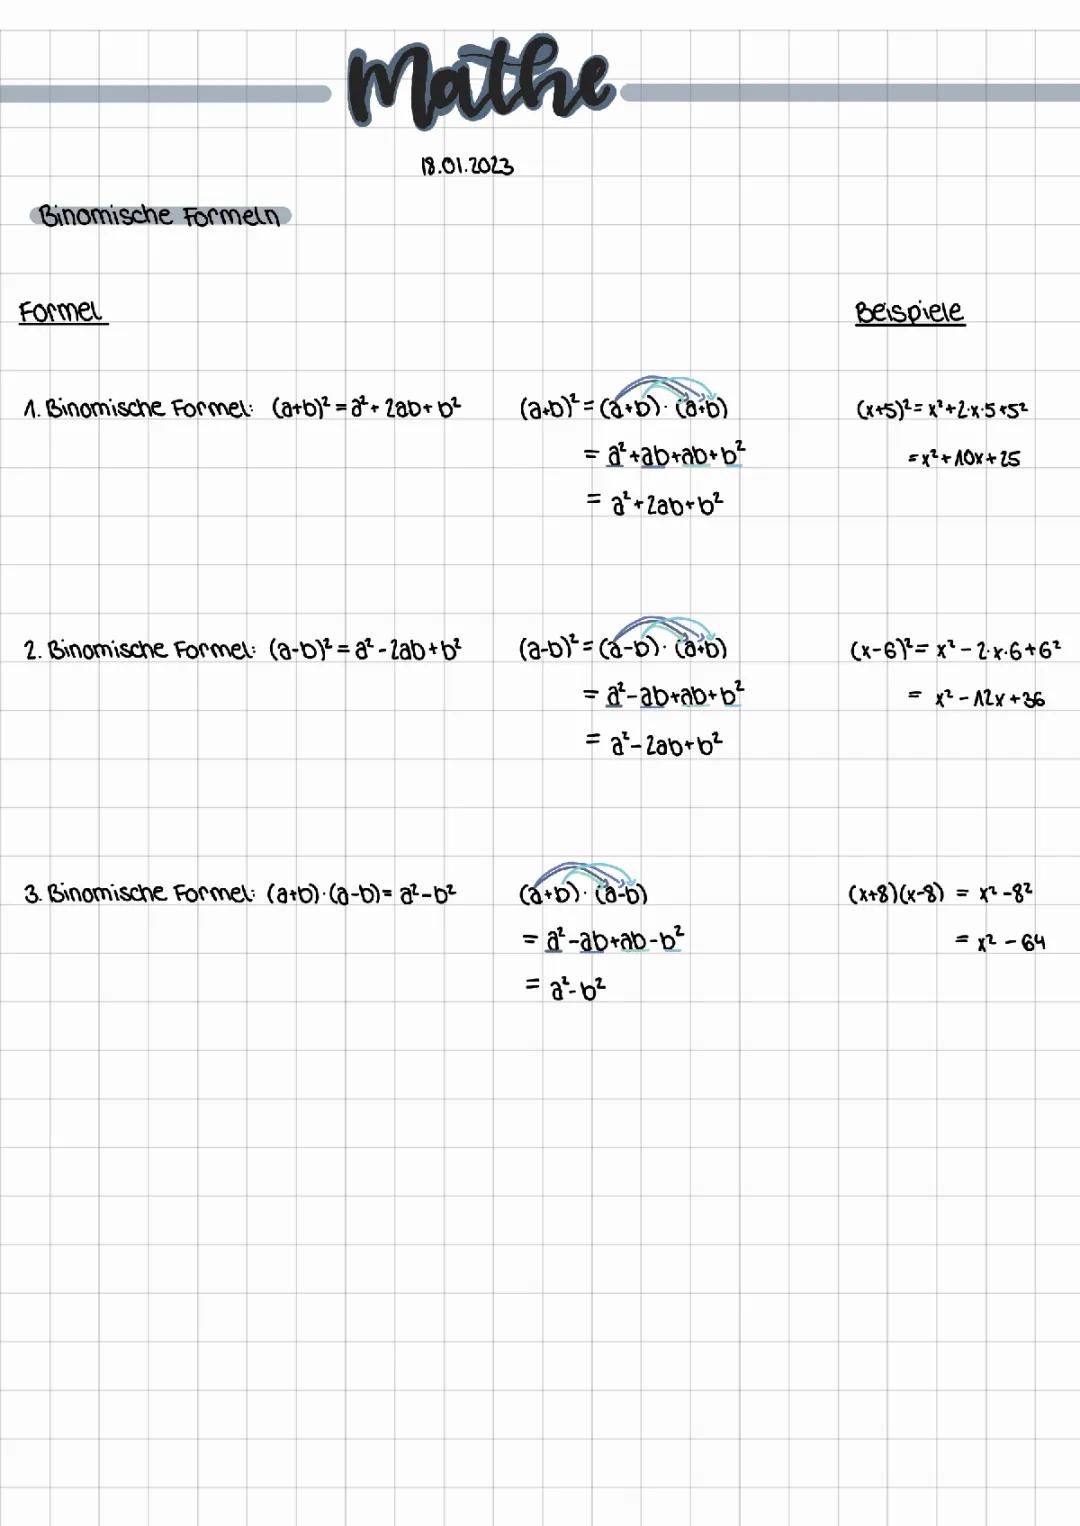 Mathe
18.01.2023
Binomische Formeln
Formel
Beispiele
1. Binomische Formel: (a+b)² = a² + 2ab + b²
(a+b)² = (a+b) · (a+b)
= a² + ab + ab + b²
= a² + 2ab + b²
(x+5)² = x² + 2·x·5 + 5²
= x² + 10x + 25
2. Binomische Formel: (a-b)² = a² - 2ab + b²
(a-b)² = (a-b) · (a+b)
= a² - ab + ab + b²
= a² - 2ab + b²
(x-6)² = x² - 2·x·6 + 6²
= x² - 12x + 36
3. Binomische Formel: (a+b) · (a-b) = a² - b²
(a+b) · (a-b)
= a² - ab + ab - b²
= a² - b²
(x+8)(x-8) = x² - 8²
= x² - 64